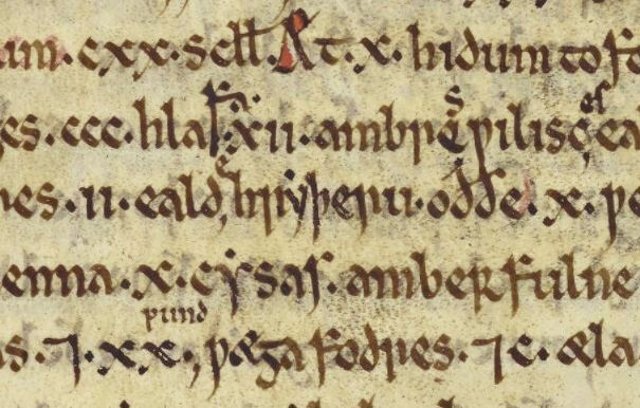 um. cxx. scll. Æt .x. hidum to fo
es .ccc. hlafa .xii. ambres ƿilisces ea
es .ii. ealde hryþeru. oððe .x. ƿe
enna .x. cysas. amber fulne
as. ⁊ .xx. pund ƿæga fodres. ⁊ c. æla